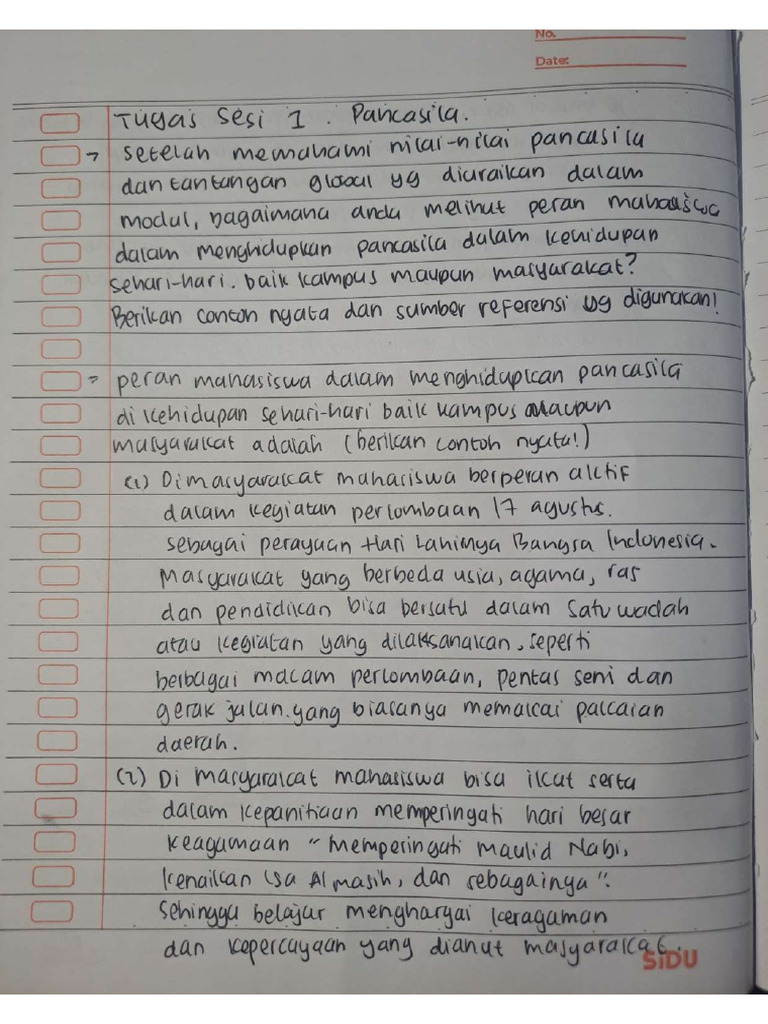 No.
Date:
Tugas Sesi 1 . Pancasila.
→ setelah memahami nilai-nilai pancasila
dan tantangan global yg diuraikan dalam
modul, bagaimana anda melihat peran mahasiswa
dalam menghidupkan pancasila dalam kehidupan
sehari-hari. baik kampus maupun masyarakat?
Berikan contoh nyata dan sumber referensi yg digunakan!
= peran mahasiswa dalam menghidupkan pancasila
di kehidupan sehari-hari baik kampus maupun
masyarakat adalah (berikan contoh nyata!)
(1) Di masyarakat mahasiswa berperan aktif
dalam kegiatan perlombaan 17 agustus.
sebagai perayaan Hari Lahirnya Bangsa Indonesia.
Masyarakat yang berbeda usia, agama, ras
dan pendidikan bisa bersatu dalam satu wadah
atau kegiatan yang dilaksanakan, seperti
berbagai macam perlombaan, pentas seni dan
gerak jalan. yang biasanya memakai pakaian
daerah.
(2) Di masyarakat mahasiswa bisa ikut serta
dalam kepanitiaan memperingati hari besar
keagamaan "memperingati Maulid Nabi,
kenaikan Isa Al masih, dan sebagainya".
Sehingga belajar menghargai keragaman
dan kepercayaan yang dianut masyarakat.
SiDU